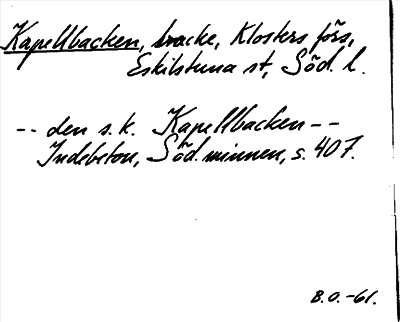 Kapellbacken, backe, Klosters förs,
Eskilstuna st, Söd. l.
-- den s.k. Kapellbacken --
Indebetou, Söd. minnen, s. 407.
B.O. -61.